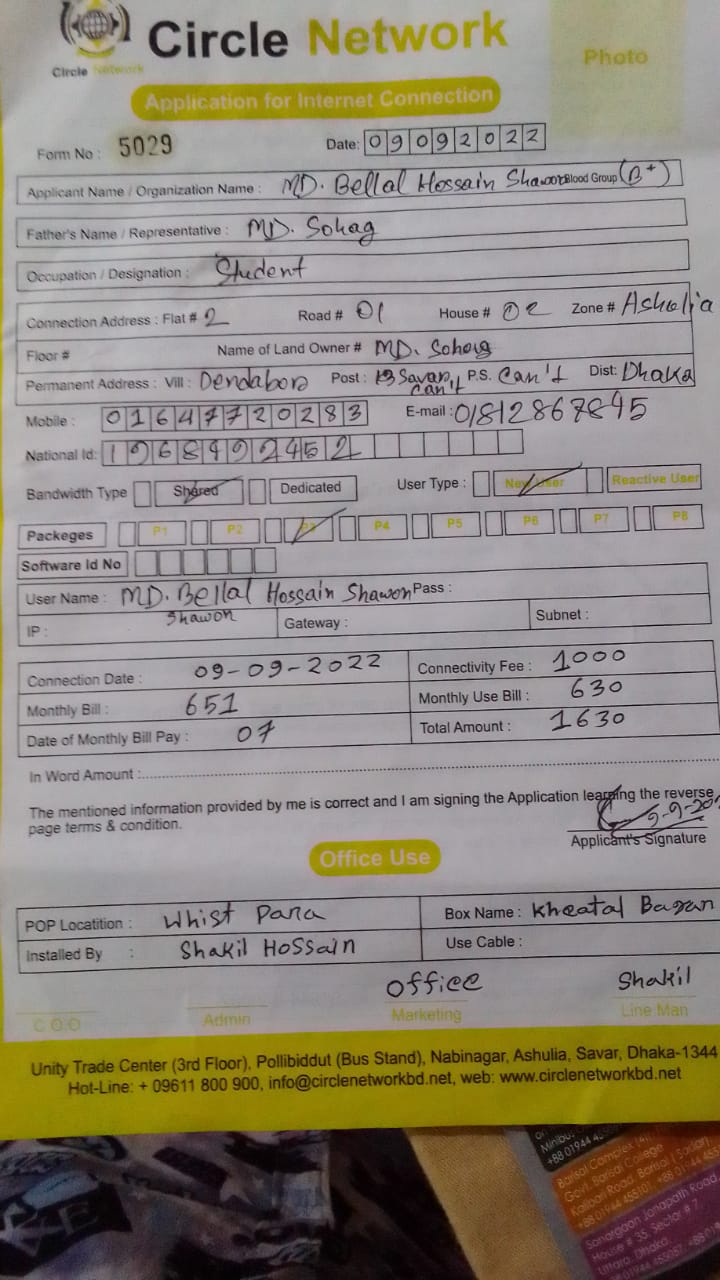 Circle Network
Circle Network
Photo
Application for Internet Connection
Form No : 5029
Date: 09092022
Applicant Name / Organization Name : MD. Bellal Hossain Shawon Blood Group (B+)
Father's Name / Representative : MD. Sohag
Occupation / Designation : Student
Connection Address : Flat # 2 Road # 01 House # 02 Zone # Ashulia
Floor # Name of Land Owner # MD. Sohag
Permanent Address : Vill : Dendabor Post : Savar, can't P.S. Can't Dist: Dhaka
Mobile : 01647720283 E-mail : 01812867845
National Id: 1968492452
Bandwidth Type Shared Dedicated User Type : New User Reactive User
Packeges P1 P2 P3 P4 P5 P6 P7 P8
Software Id No
User Name : MD. Bellal Hossain Shawon Pass :
Shawon
IP : Gateway : Subnet :
Connection Date : 09-09-2022 Connectivity Fee : 1000
Monthly Bill : 651 Monthly Use Bill : 630
Date of Monthly Bill Pay : 07 Total Amount : 1630
In Word Amount :
The mentioned information provided by me is correct and I am signing the Application learning the reverse
page terms & condition.
9-9-202
Applicant's Signature
Office Use
POP Locatition : Whist Para Box Name : Kheatal Bagan
Installed By : Shakil Hossain Use Cable :
Office Shakil
C O O Admin Marketing Line Man
Unity Trade Center (3rd Floor), Pollibiddut (Bus Stand), Nabinagar, Ashulia, Savar, Dhaka-1344
Hot-Line: + 09611 800 900, info@circlenetworkbd.net, web: www.circlenetworkbd.net
Barisal Complex
Govt. Barisal College
Kalibari Road, Barisal
Sonargaon Janapath Road
House # 35, Sector # 7
Uttara, Dhaka